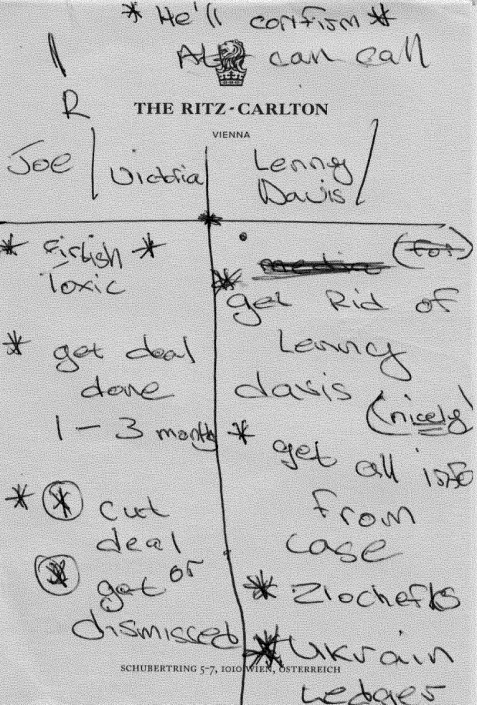 * He'll confirm *
can call
R
THE RITZ-CARLTON
VIENNA
Joe
Victoria
Lenny
Davis
* Firtish *
Toxic
* get deal
done
1 - 3 months
* * cut
deal
or
* get
dismissed
* get Rid of
Lenny
davis
(nicely)
* get all info
from
case
* Zlochefks
* Ukrain
Ledger
SCHUBERTRING 5-7, 1010 WIEN, ÖSTERREICH